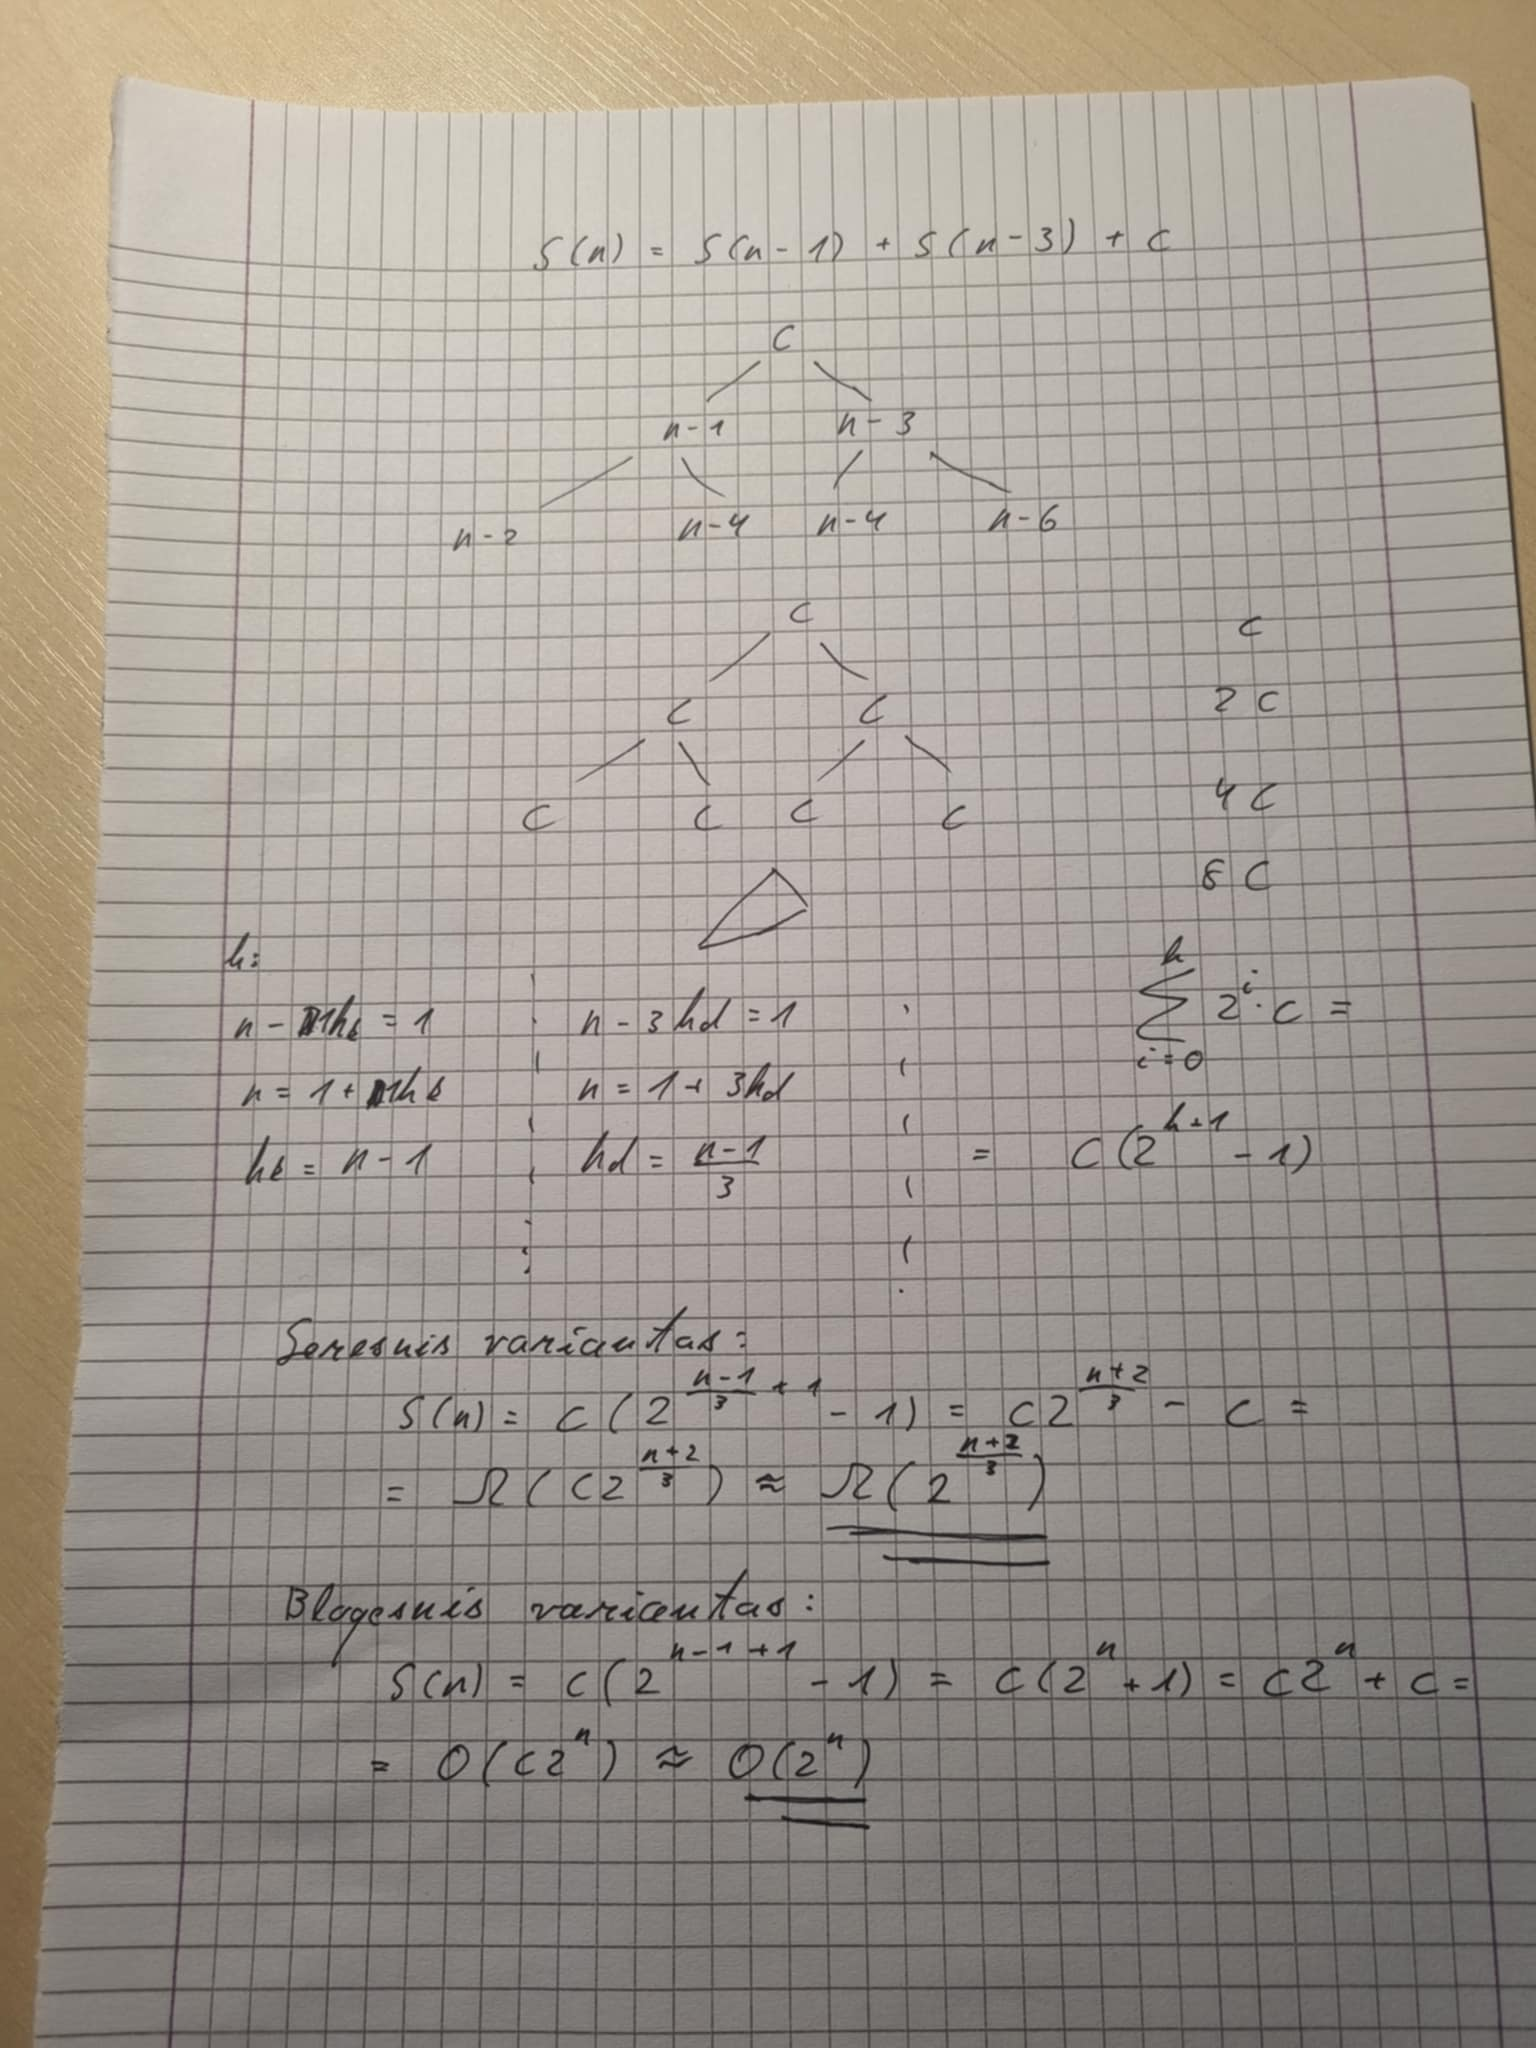 S(n) = S(n-1) + S(n-3) + C
C
n-1 n-3
n-2 n-4 n-4 n-6
C C
C C 2C
C C C C 4C
8C
h:
n - 1hk = 1 n - 3hd = 1 \sum_{i=0}^{h} 2^i · c =
n = 1 + 1hk n = 1 + 3hd
hk = n-1 hd = \frac{n-1}{3} = C(2^{h+1} - 1)
Geresnis variantas:
S(n) = C(2^{\frac{n-1}{3}+1} - 1) = C2^{\frac{n+2}{3}} - C =
= Ω(C2^{\frac{n+2}{3}}) ≈ Ω(2^{\frac{n+2}{3}})
Blogesnis variantas:
S(n) = C(2^{n-1+1} - 1) = C(2^n + 1) = C2^n + C =
= O(C2^n) ≈ O(2^n)